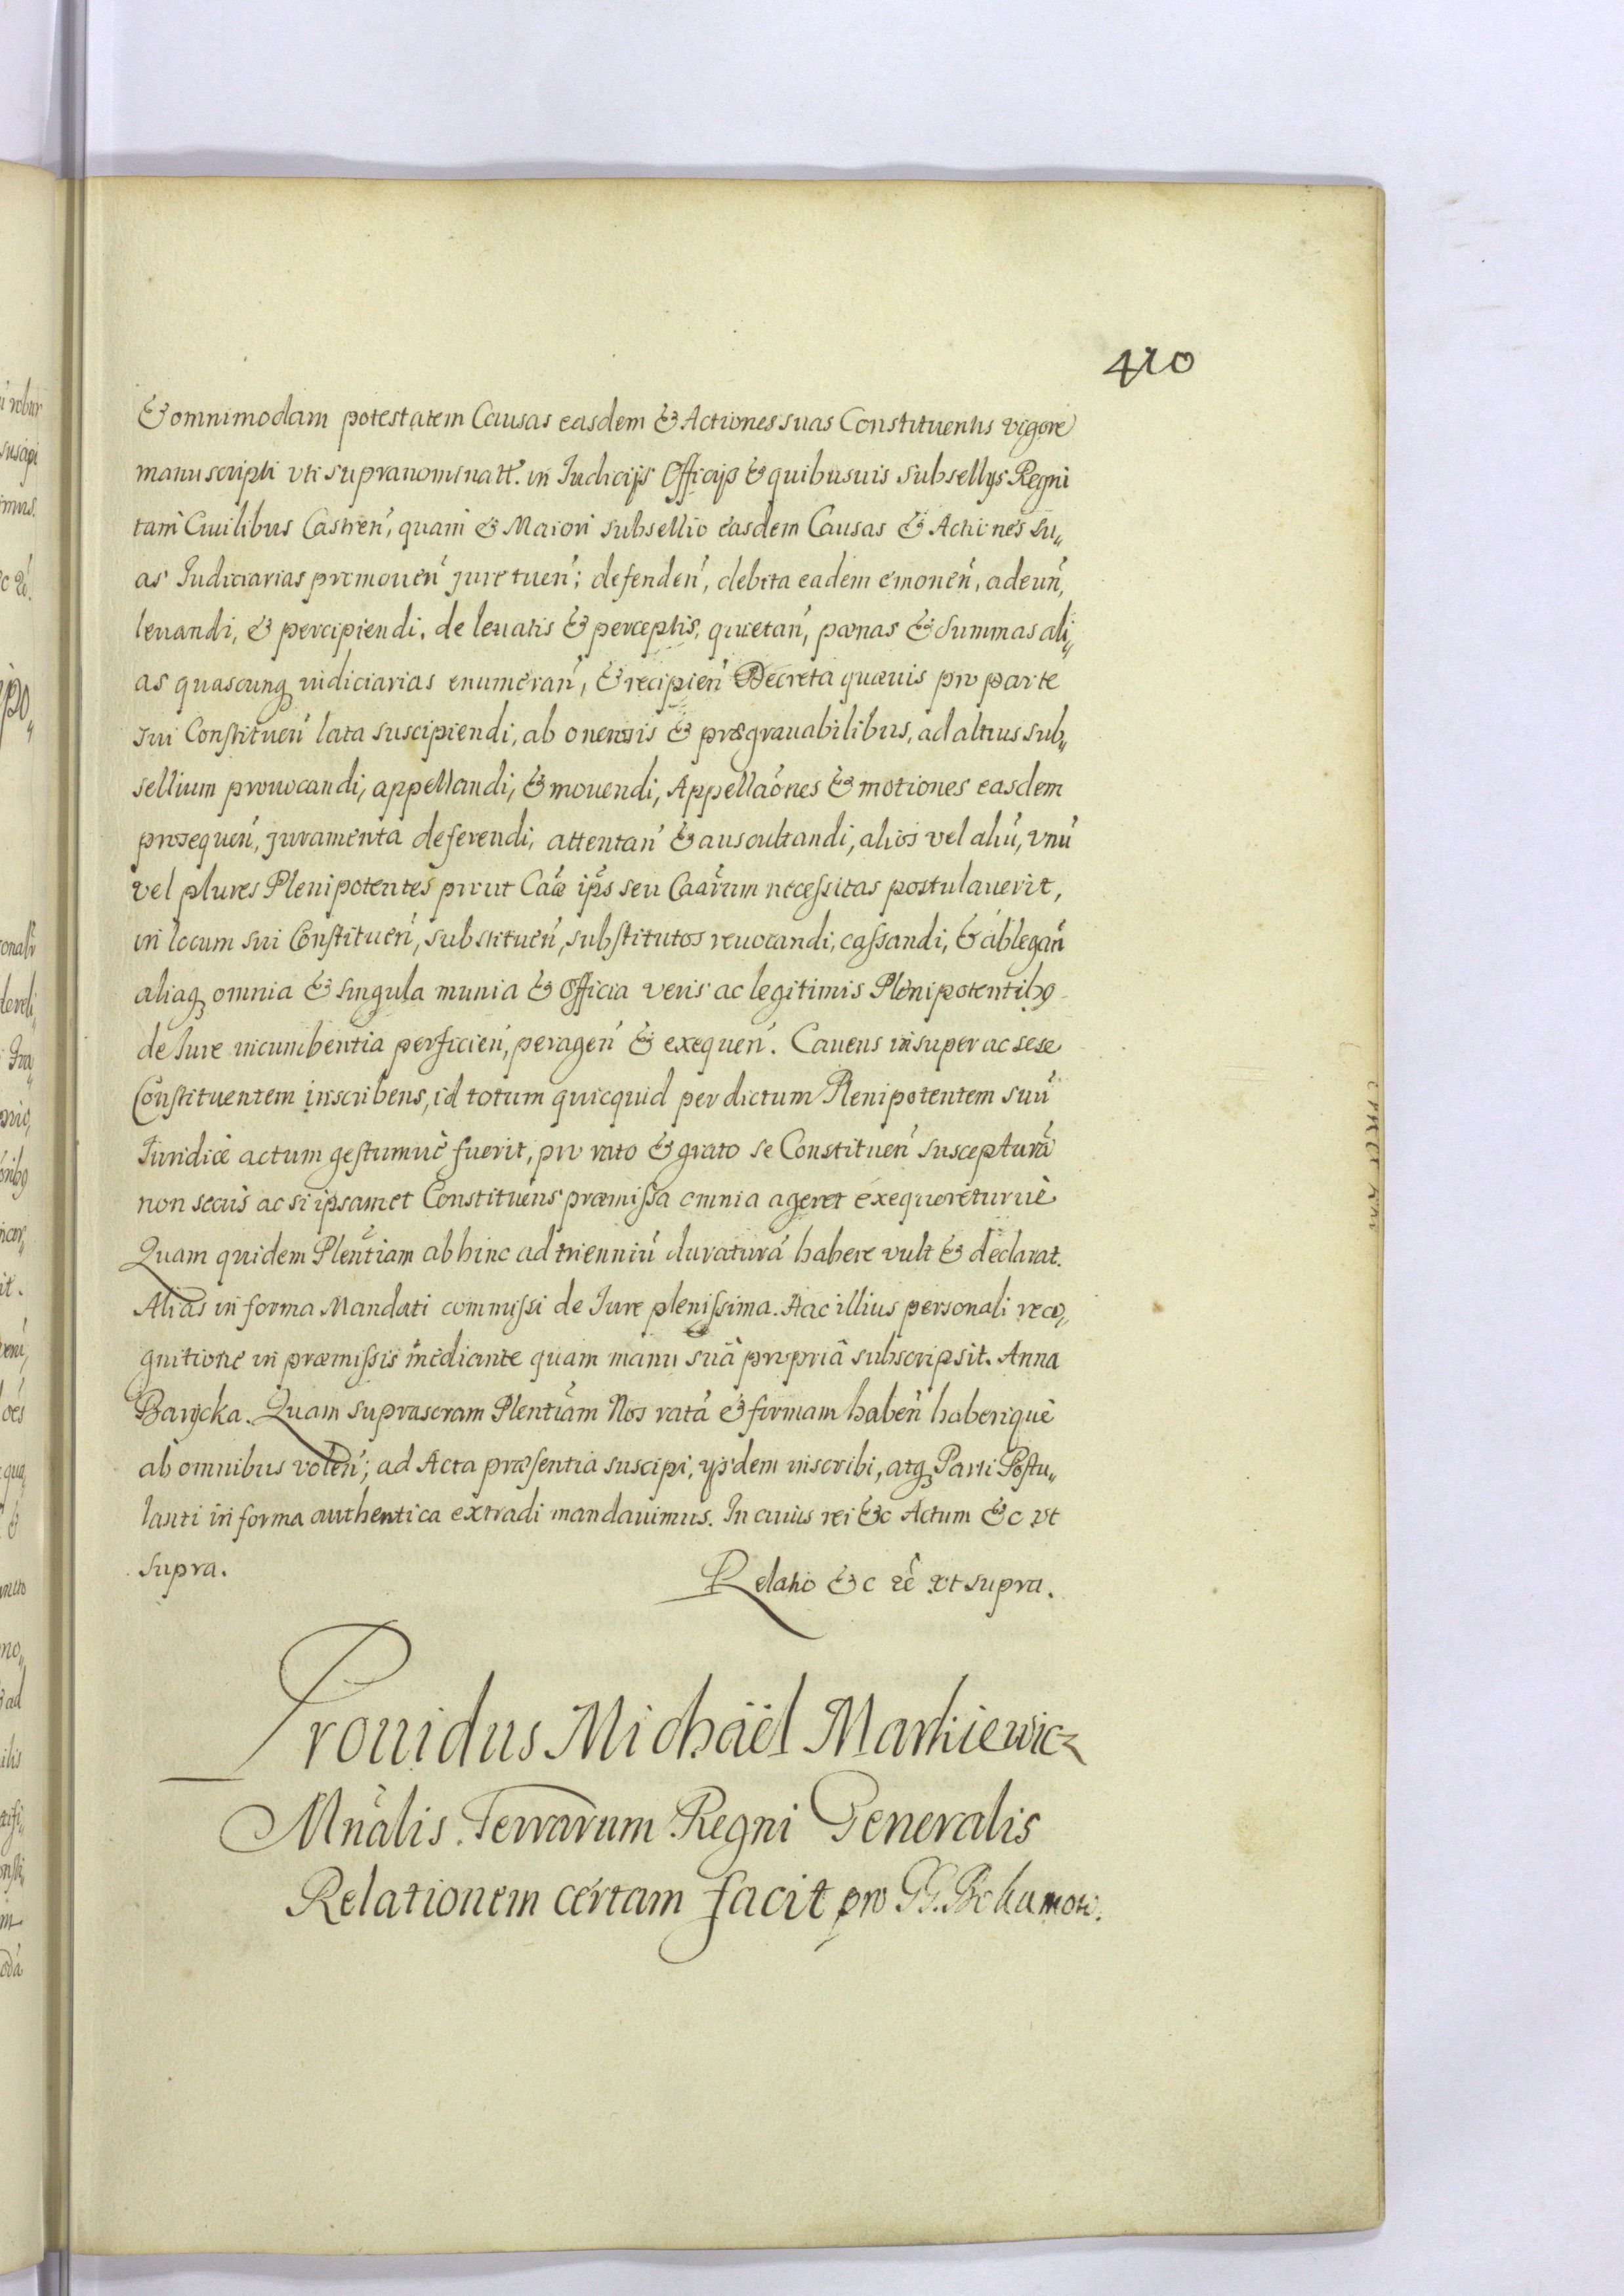 410
& omnimodam potestatem Causas easdem & Actiones suas Constituentis vigore
manuscripti vti supranominatt. in Iudicijs Officijs & quibusuis subsellijs Regni
tam Ciuilibus Castreń, quam & Maiori subsellio easdem Causas & Actiones su„
as Iudiciarias promoueń jure tueń; defendeń, debita eadem emoneń, adeuń,
leuandi, & percipiendi, de leuatis & perceptis, quietań, pœnas & summas ali„
as quascunq iudiciarias enumerań, & recipień Decreta quæuis pro parte
sui Constitueń lata suscipiendi, ab onerosis & prægrauabilibus, ad altius sub„
sellium prouocandi, appellandi, & mouendi, Appellaões & motiones easdem
prosequeń, juramenta deferendi, attentań & auscultandi, alios vel aliũ, vnũ
vel plures Plenipotentes prout Caæ ipš seu Caarum necessitas postulauerit,
in locum sui Constitueń, substitueń, substitutos reuocandi, cassandi, & ablegań
aliaq omnia & singula munia & Officia veris ac legitimis Plenipotentibq
de Iure incumbentia perficień, perageń & exequeń. Cauens insuper ac sese
Constituentem inscribens, id totum quicquid per dictum Plenipotentem suũ
Iuridicè actum gestumuè fuerit, pro rato & grato se Constitueń suscepturã
non secus ac si ipsamet Constituens præmissa omnia ageret exequereturuè
Quam quidem Plentiam ab hinc ad trienniũ duraturã habere vult & declarat.
Alias in forma Mandati commissi de Iure plenissima. Hac illius personali reco„
gnitione in præmissis mediante quam manu suâ propriâ subscripsit. Anna
Barycka. Quam suprascram Plentiam Nos ratã & firmam habeń haberique
ab omnibus voleń; ad Acta præsentia suscipi, ijsdem inscribi, atq Parti Postu„
lanti in forma authentica extradi mandauimus. In cuius rei &c Actum &c vt
supra.
Relatio &c &c vt supra.
Prouidus Michaël Markiewicz
Mnalis Terrarum Regni Generalis
Relationem certam facit pro